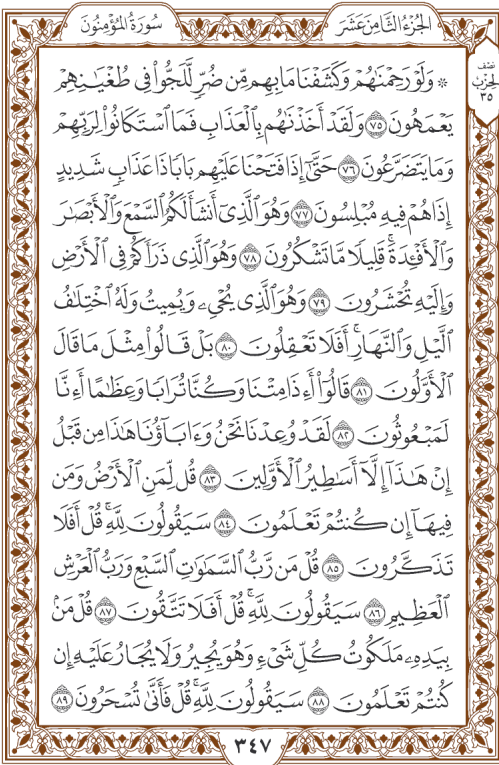 سُورَةُ المُؤْمِنُونَ
الجُزْءُ الثَّامِنَ عَشَرَ
نصف
الحزب
٣٥
۞ وَلَوْ رَحِمْنَٰهُمْ وَكَشَفْنَا مَا بِهِم مِّن ضُرٍّ لَّلَجُّوا۟ فِى طُغْيَٰنِهِمْ
يَعْمَهُونَ ٧٥ وَلَقَدْ أَخَذْنَٰهُم بِٱلْعَذَابِ فَمَا ٱسْتَكَانُوا۟ لِرَبِّهِمْ
وَمَا يَتَضَرَّعُونَ ٧٦ حَتَّىٰٓ إِذَا فَتَحْنَا عَلَيْهِم بَابًا ذَا عَذَابٍ شَدِيدٍ
إِذَا هُمْ فِيهِ مُبْلِسُونَ ٧٧ وَهُوَ ٱلَّذِىٓ أَنشَأَ لَكُمُ ٱلسَّمْعَ وَٱلْأَبْصَٰرَ
وَٱلْأَفْـِٔدَةَ ۚ قَلِيلًا مَّا تَشْكُرُونَ ٧٨ وَهُوَ ٱلَّذِى ذَرَأَكُمْ فِى ٱلْأَرْضِ
وَإِلَيْهِ تُحْشَرُونَ ٧٩ وَهُوَ ٱلَّذِى يُحْىِۦ وَيُمِيتُ وَلَهُ ٱخْتِلَٰفُ
ٱلَّيْلِ وَٱلنَّهَارِ ۚ أَفَلَا تَعْقِلُونَ ٨٠ بَلْ قَالُوا۟ مِثْلَ مَا قَالَ
ٱلْأَوَّلُونَ ٨١ قَالُوٓا۟ أَءِذَا مِتْنَا وَكُنَّا تُرَابًا وَعِظَٰمًا أَءِنَّا
لَمَبْعُوثُونَ ٨٢ لَقَدْ وُعِدْنَا نَحْنُ وَءَابَآؤُنَا هَٰذَا مِن قَبْلُ
إِنْ هَٰذَآ إِلَّآ أَسَٰطِيرُ ٱلْأَوَّلِينَ ٨٣ قُل لِّمَنِ ٱلْأَرْضُ وَمَن
فِيهَآ إِن كُنتُمْ تَعْلَمُونَ ٨٤ سَيَقُولُونَ لِلَّهِ ۚ قُلْ أَفَلَا
تَذَكَّرُونَ ٨٥ قُلْ مَن رَّبُّ ٱلسَّمَٰوَٰتِ ٱلسَّبْعِ وَرَبُّ ٱلْعَرْشِ
ٱلْعَظِيمِ ٨٦ سَيَقُولُونَ لِلَّهِ ۚ قُلْ أَفَلَا تَتَّقُونَ ٨٧ قُلْ مَنۢ
بِيَدِهِۦ مَلَكُوتُ كُلِّ شَىْءٍ وَهُوَ يُجِيرُ وَلَا يُجَارُ عَلَيْهِ إِن
كُنتُمْ تَعْلَمُونَ ٨٨ سَيَقُولُونَ لِلَّهِ ۚ قُلْ فَأَنَّىٰ تُسْحَرُونَ ٨٩
٣٤٧